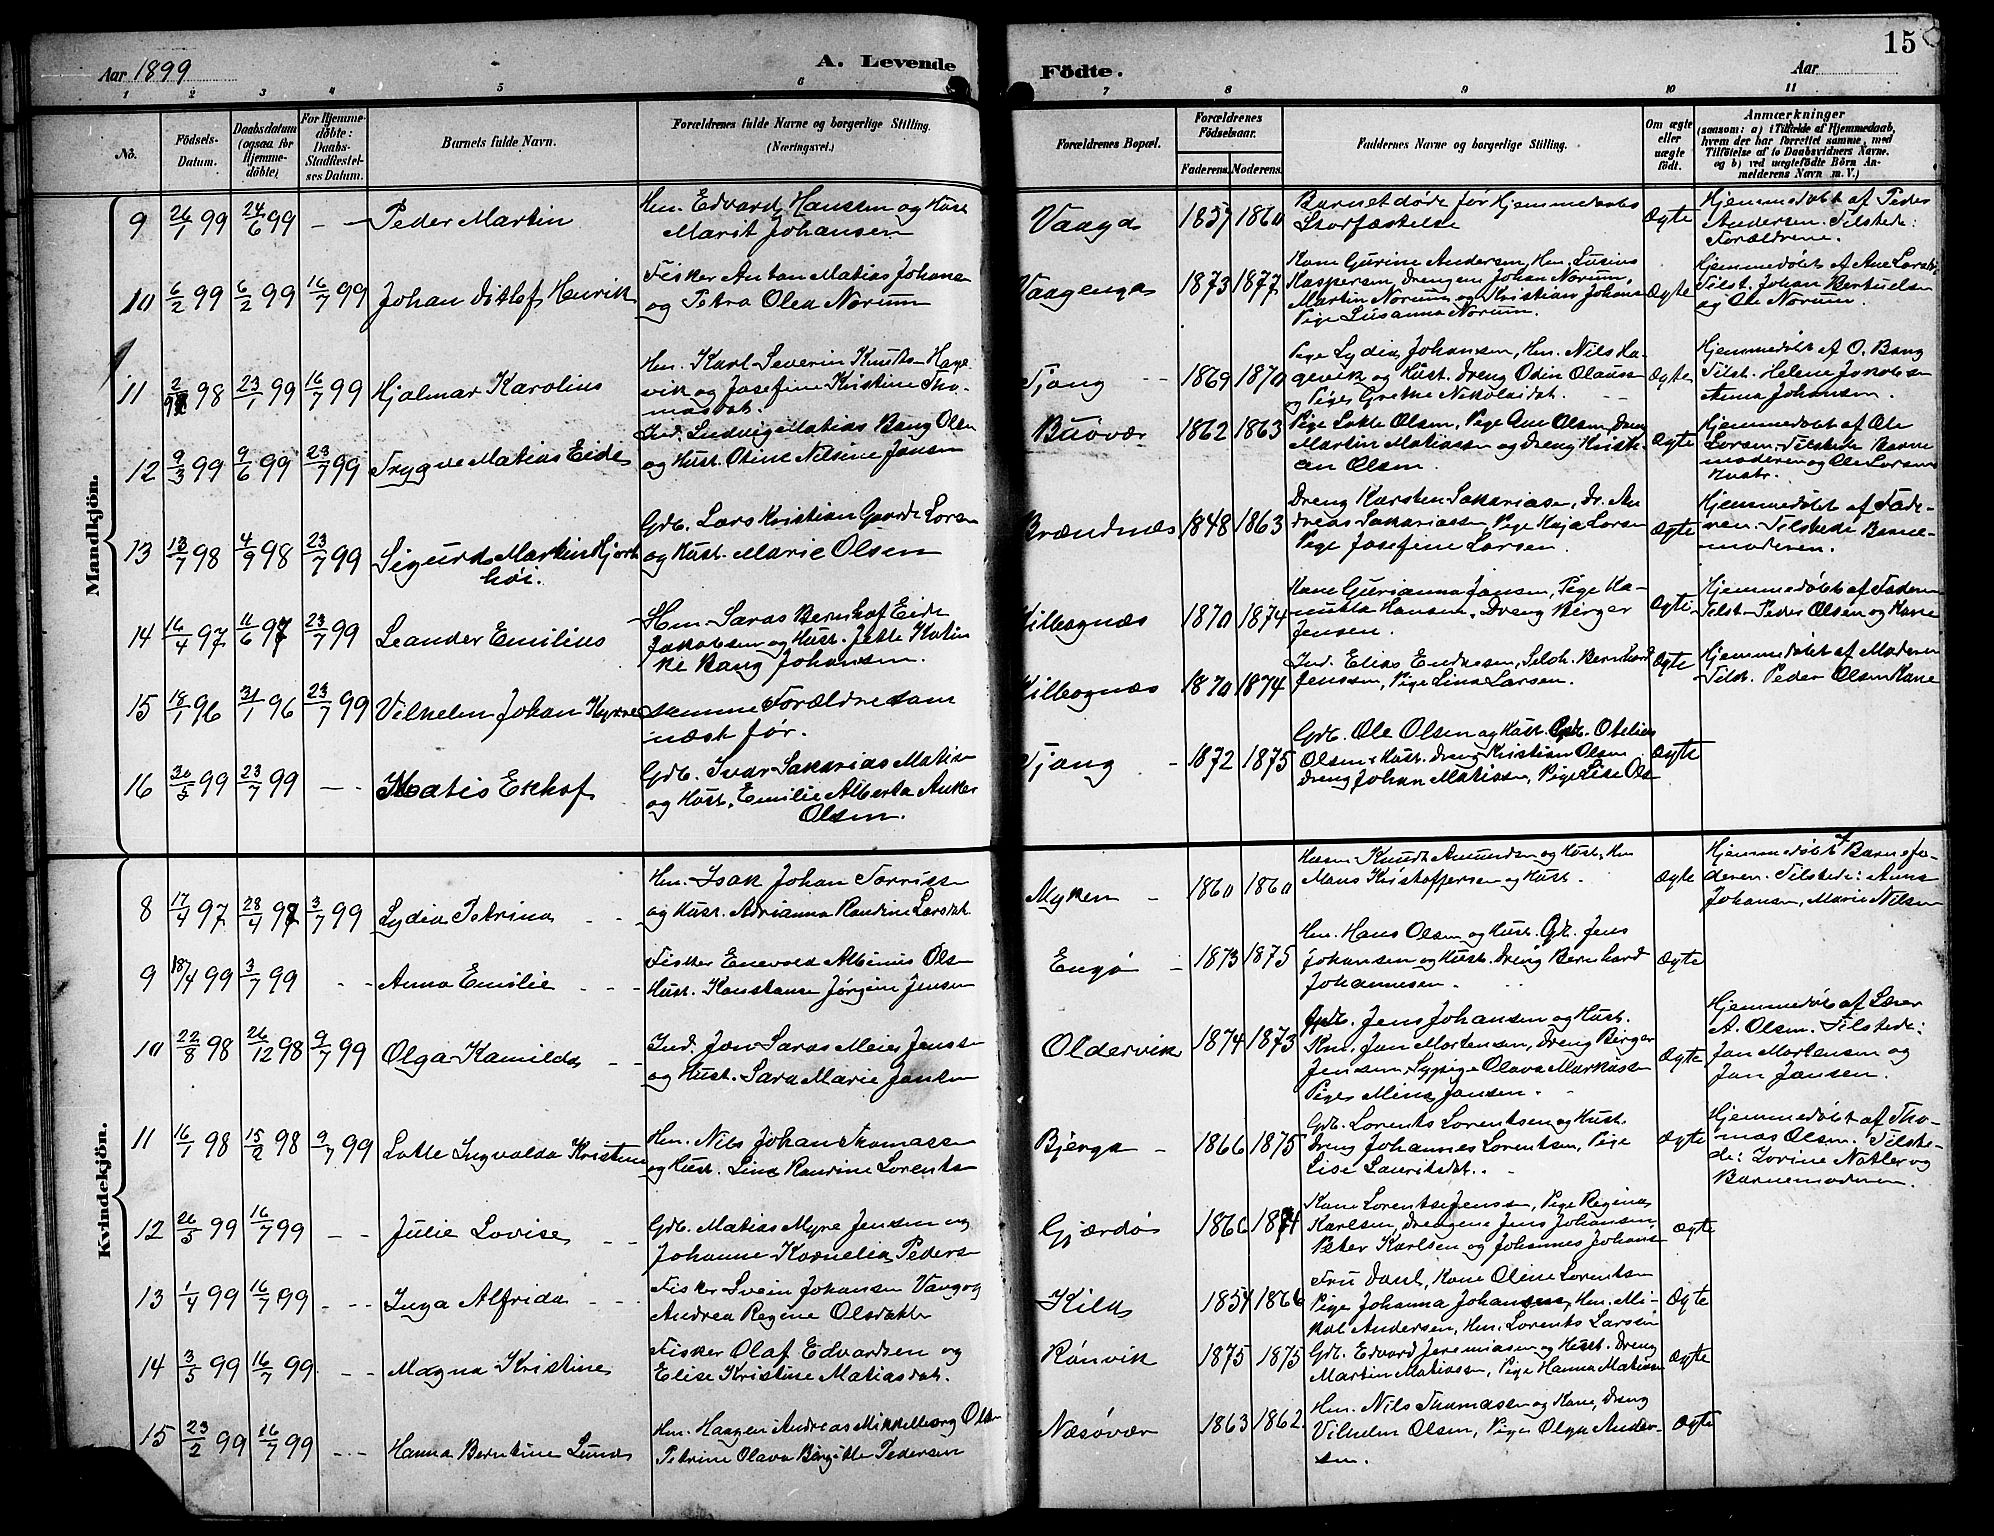 Aar 1899
A. Levende
Födte.
Aar
15
1 2 3 4 5 6 7 8 9 10 11
No.
Födsels-
Datum.
Daabsdatum
(ogsaa for
Hjemme-
döbte)
For Hjemme-
döbte:
Daabs-
Stadfæstel-
ses Datum.
Barnets fulde Navn.
Forældrenes fulde Navne og borgerlige Stilling.
(Næringsvei.)
Forældrenes Bopæl.
Forældrenes
Födselsaar.
Faderens. Moderens.
Faddernes Navne og borgerlige Stilling.
Om ægte
eller
uægte
födt.
Anmærkninger
(saasom: a) i Tilfælde af Hjemmedaab,
hvem der har forrettet samme, med
Tilföielse af to Daabsvidners Navne.
og b) ved uægtefödte Börn An-
melderens Navn m. V.)
Mandkjön.
9 26/1 99 24/6 99 - - Peder Martin
Hm. Edvard Hanssen og Hust
Marit Johansen
Vaaga 1857 1860
Barnet døde før Hjemmedaabs
Stadfæstelse
Ægte
Hjemmedøbt af Peder
Andersen. Tilstede:
Forældrene.
10 6/2 99 6/2 99 16/7 99 Johan Ditlef Henrik
Fisker Antan Matias Johans
og Petra Olea Norum
Vaagenga 1873 1877
Kone Gurine Andersen, Hm. Lusius
Kaspersen, Drengen Johan Norum,
Martin Norum og Kristian Johans
Pige Susanna Norum.
Ægte
Hjemmedøbt af Ane Larsd
Tilst. Johan Bertielsen
og Ole Norum.
11 2/9 98 23/1 99 16/7 99 Hjalmar Karolius
Hm. Karl Severin Knuts- Hage
vik og Josefine Kristine Tho-
masdat.
Tjong 1869 1870
Pige Lydia Johansen, Hm. Nils Ha-
gevik og Hust. Dreng Odin Olauss
og Piges Grethe Nikolaidat.
Ægte
Hjemmedøbt af O. Bang
Tilst. Helene Jakobsen
Anna Johansen.
12 9/3 99 9/6 99 23/7 99 Trygve Matias Eide
Ind. Ludvig Matias Bang Olsn
og Hust. Oline Nilsine Jensen
Buøvær 1862 1863
Pige Lotte Olsen, Pige Ane Olsen, Dren
Martin Matiassen og Dreng Kristi-
an Olsen.
Ægte
Hjemmedøbt af Ole
Larsen. Tilstede Barne
moderen og Ole Larsens
Hustr.
13 13/7 98 4/9 98 23/7 99 Sigurd Martin Hjort
høi.
Grb. Lars Kristian Gaarde Lorsn
og Hust. Marie Olsen
Brændnæs 1848 1863
Dreng Karsten Sakariasen, Dr. An
dreas Sakariassen, Pige Kaja Larsen
Pige Josefine Larsen.
Ægte
Hjemmedøbt af Fade-
ren. Tilstede Barne-
moderen.
14 16/4 97 11/6 97 23/7 99 Leander Emilius
Hm. Saras Bernhof Eide
Jakobsen og Hust. Jette Katin
ke Bang Johansen.
Killeognæs 1870 1874
Kone Gurianna Jansen, Pige Ha-
Hansen, Dreng Birger
Jensen.
Ægte
Hjemmedøbt af Faderen
Tilst. Peder Olsen og Kone
15 18/1 96 31/1 96 23/7 99 Vilhelm Johan
Semme Forældre som
næst før.
Killeognæs 1870 1874
Ind. Elias Endresen, Selvh. Bernhard
Jenssen, Pige Lina Larsen.
Ægte
Hjemmedøbt af Moderen
Tilst. Peder Olsen Kone
16 30/5 99 23/7 99 - - Matis Ekhof
Grb. Ivar Sakarias Matis
og Hust. Emilie Alberta Anker
Olsen.
Tjong 1872 1875
Grb. Ole Olsen og Hust. Grb. Otelius
Olsen & Hust. Dreng Kristian Olsen
Dreng Johan Matiassen, Pige Lise Ols
Ægte
Kvindekjön.
8 17/4 97 28/4 97 3/7 99 Lydia Petrina
Hm. Isak Johan Torriss
og Hust. Adrianna Randine Larsdat
Myken 1860 1860
Knudt Amundsen og Hust. Hm
Mons Kristoffersen og Hust.
Ægte
Hjemmedøbt af Barnefa-
deren. Tilstede: Anna
Johansen, Marie Nilsen
9 18/4 99 3/7 99 - - Anna Emilie
Fisker Enevold Albinus Olsn
Hust. Konstanse Jørgine Jensen
Engø 1873 1875
Hm. Hans Olsen og Hust. Grb. Jens
Johansen og Hust. Dreng Bernhard
Johannesen.
Ægte
10 22/8 98 26/12 98 9/7 99 Olga Kamilda
Ind. Jan Saras Meier Jenss
og Hust. Sara Marie Jansen
Oldervik 1874 1873
Grb. Jens Johansen og Hust.
Km. Jan Mortensen, Dreng Birger
Jensen, Sypige Olava Markussen
Piges Mina Jansen.
Ægte
Hjemmedøbt af Lærer
A. Olsen. Tilstede:
Jan Mortensen og
Jan Jansen.
11 16/1 98 15/2 98 9/7 99 Lotte Ingvalda Kristine
Hm. Nils Johan Thomassn
og Hust. Lina Randine Lorents
Bjerga 1866 1875
Grb. Lorents Lorentsen og Hust
Dreng Johannes Lorentsen, Pige
Lise Lauritsdat.
Ægte
Hjemmedøbt af Tho-
mas Olsen. Tilste-
de: Jorine Natler og
Barnemoderen.
12 26/5 99 16/7 99 - - Julie Lovise
Grb. Matias Myre Jensen og
Johanne Kornelia Peders
Gjærdøs 1866 1871
Kone Lorentse Jenssen, Pige Regina
Karlsen, Drengene Jens Johansen,
Peter Karlsen og Johannes Johans
Ægte
13 1/4 99 16/7 99 - - Inga Alfrida
Fisker Svein Johansen Vang og
Andrea Regine Olsdatter
Kila 1854 1866
Fru Dahl, Kone Oline Lorentsn
Pige Johanna Johansen, Hm. Mi-
kal Andersen, Hm. Lorents Larsen
Ægte
14 3/5 99 16/7 99 - - Magna Kristine
Fisker Olaf Edvardsen og
Elise Kristine Matiasdat.
Rønvik 1875 1875
Grb. Edvard Jeremiasen og Hust. Dreng
Martin Matiassen, Pige Hanna Matiass
Ægte
15 23/2 99 16/7 99 - - - Hanna Berntine Lund
Hm. Haagen Andreas Mikkelborg Olsn
Petrine Olava Birgitte Pedersen
Næsøvær 1863 1862.
Hm. Nils Thomassen og Kone, Dreng
Vilhelm Olsen, Pige Olga Ander-
sen.
Ægte